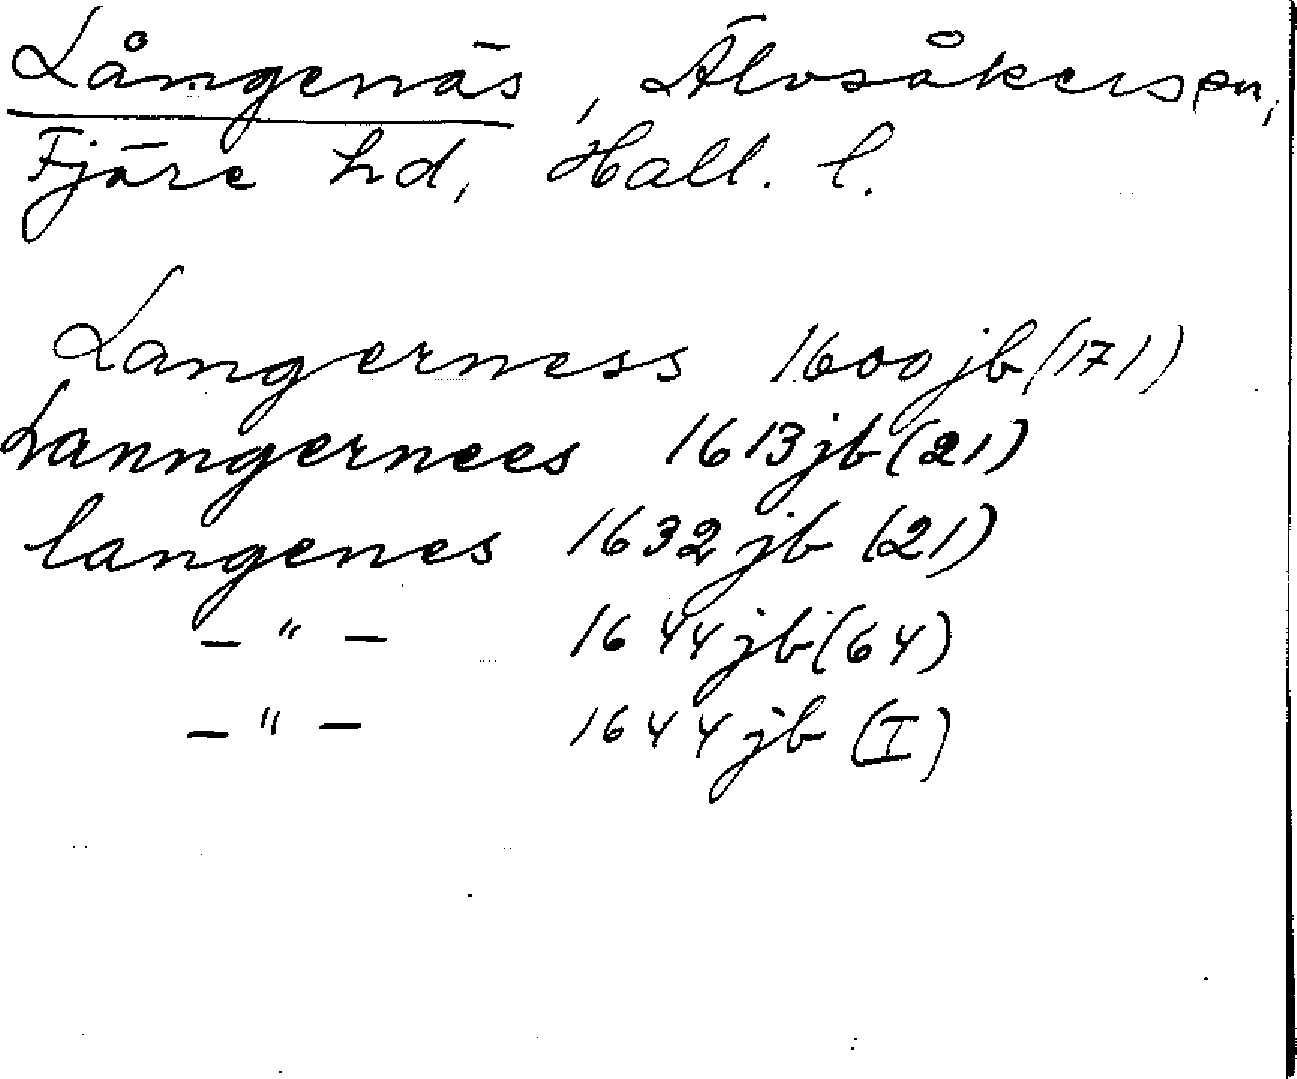 Långenäs, Älvsåkers sn,
Fjäre hd, Hall. l.
Langerness 1600 jb (171)
Lanngernees 1613 jb (21)
langenes 1632 jb (21)
– " – 1644 jb (64)
– " – 1644 jb (I)